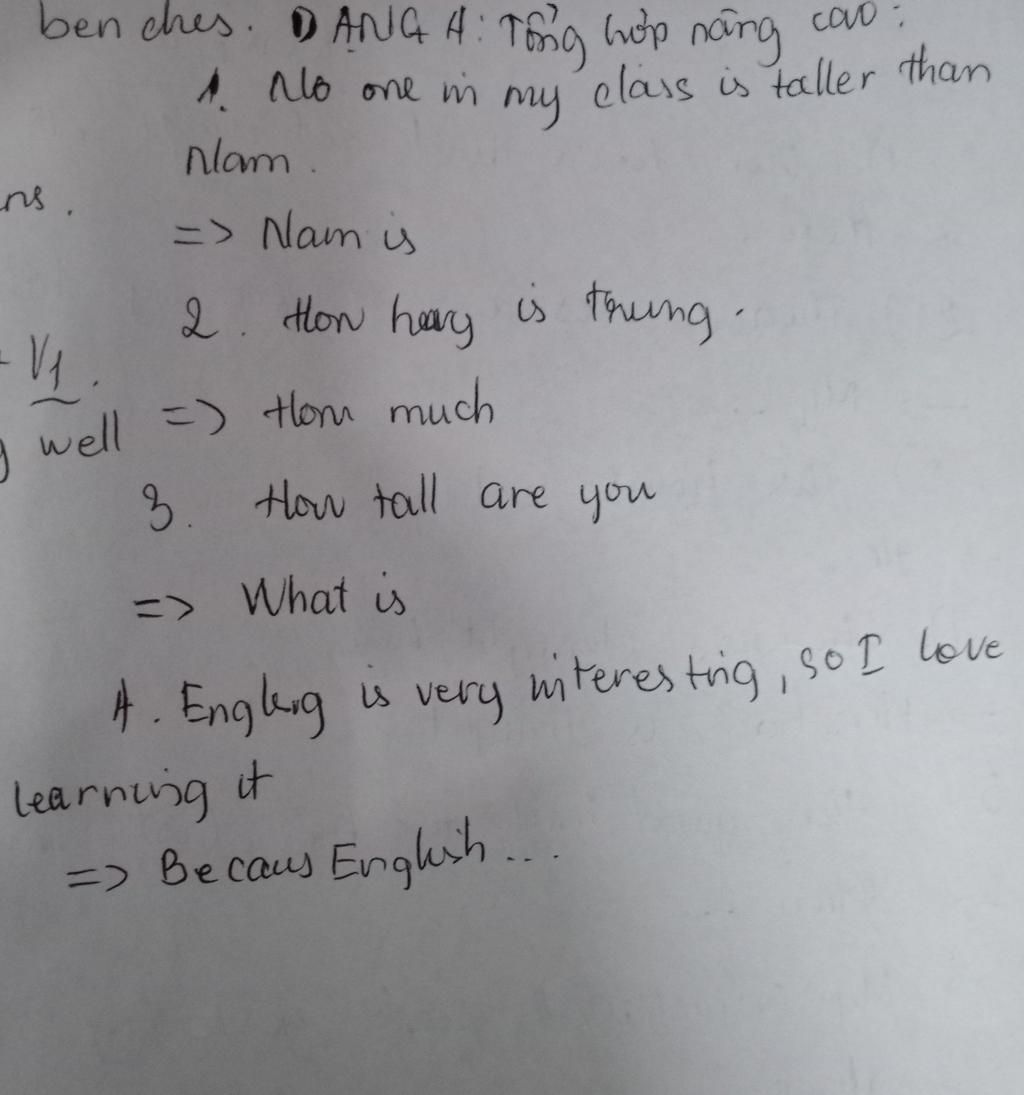 benches. DẠNG 4: Tổng hợp nâng cao:
1. No one in my class is taller than
Nam.
ns.
=> Nam is
2. How heavy is Trung.
V1.
=> How much
well
3. How tall are you
=> What is
4. English is very interesting, so I love
learning it
=> Becaus English...